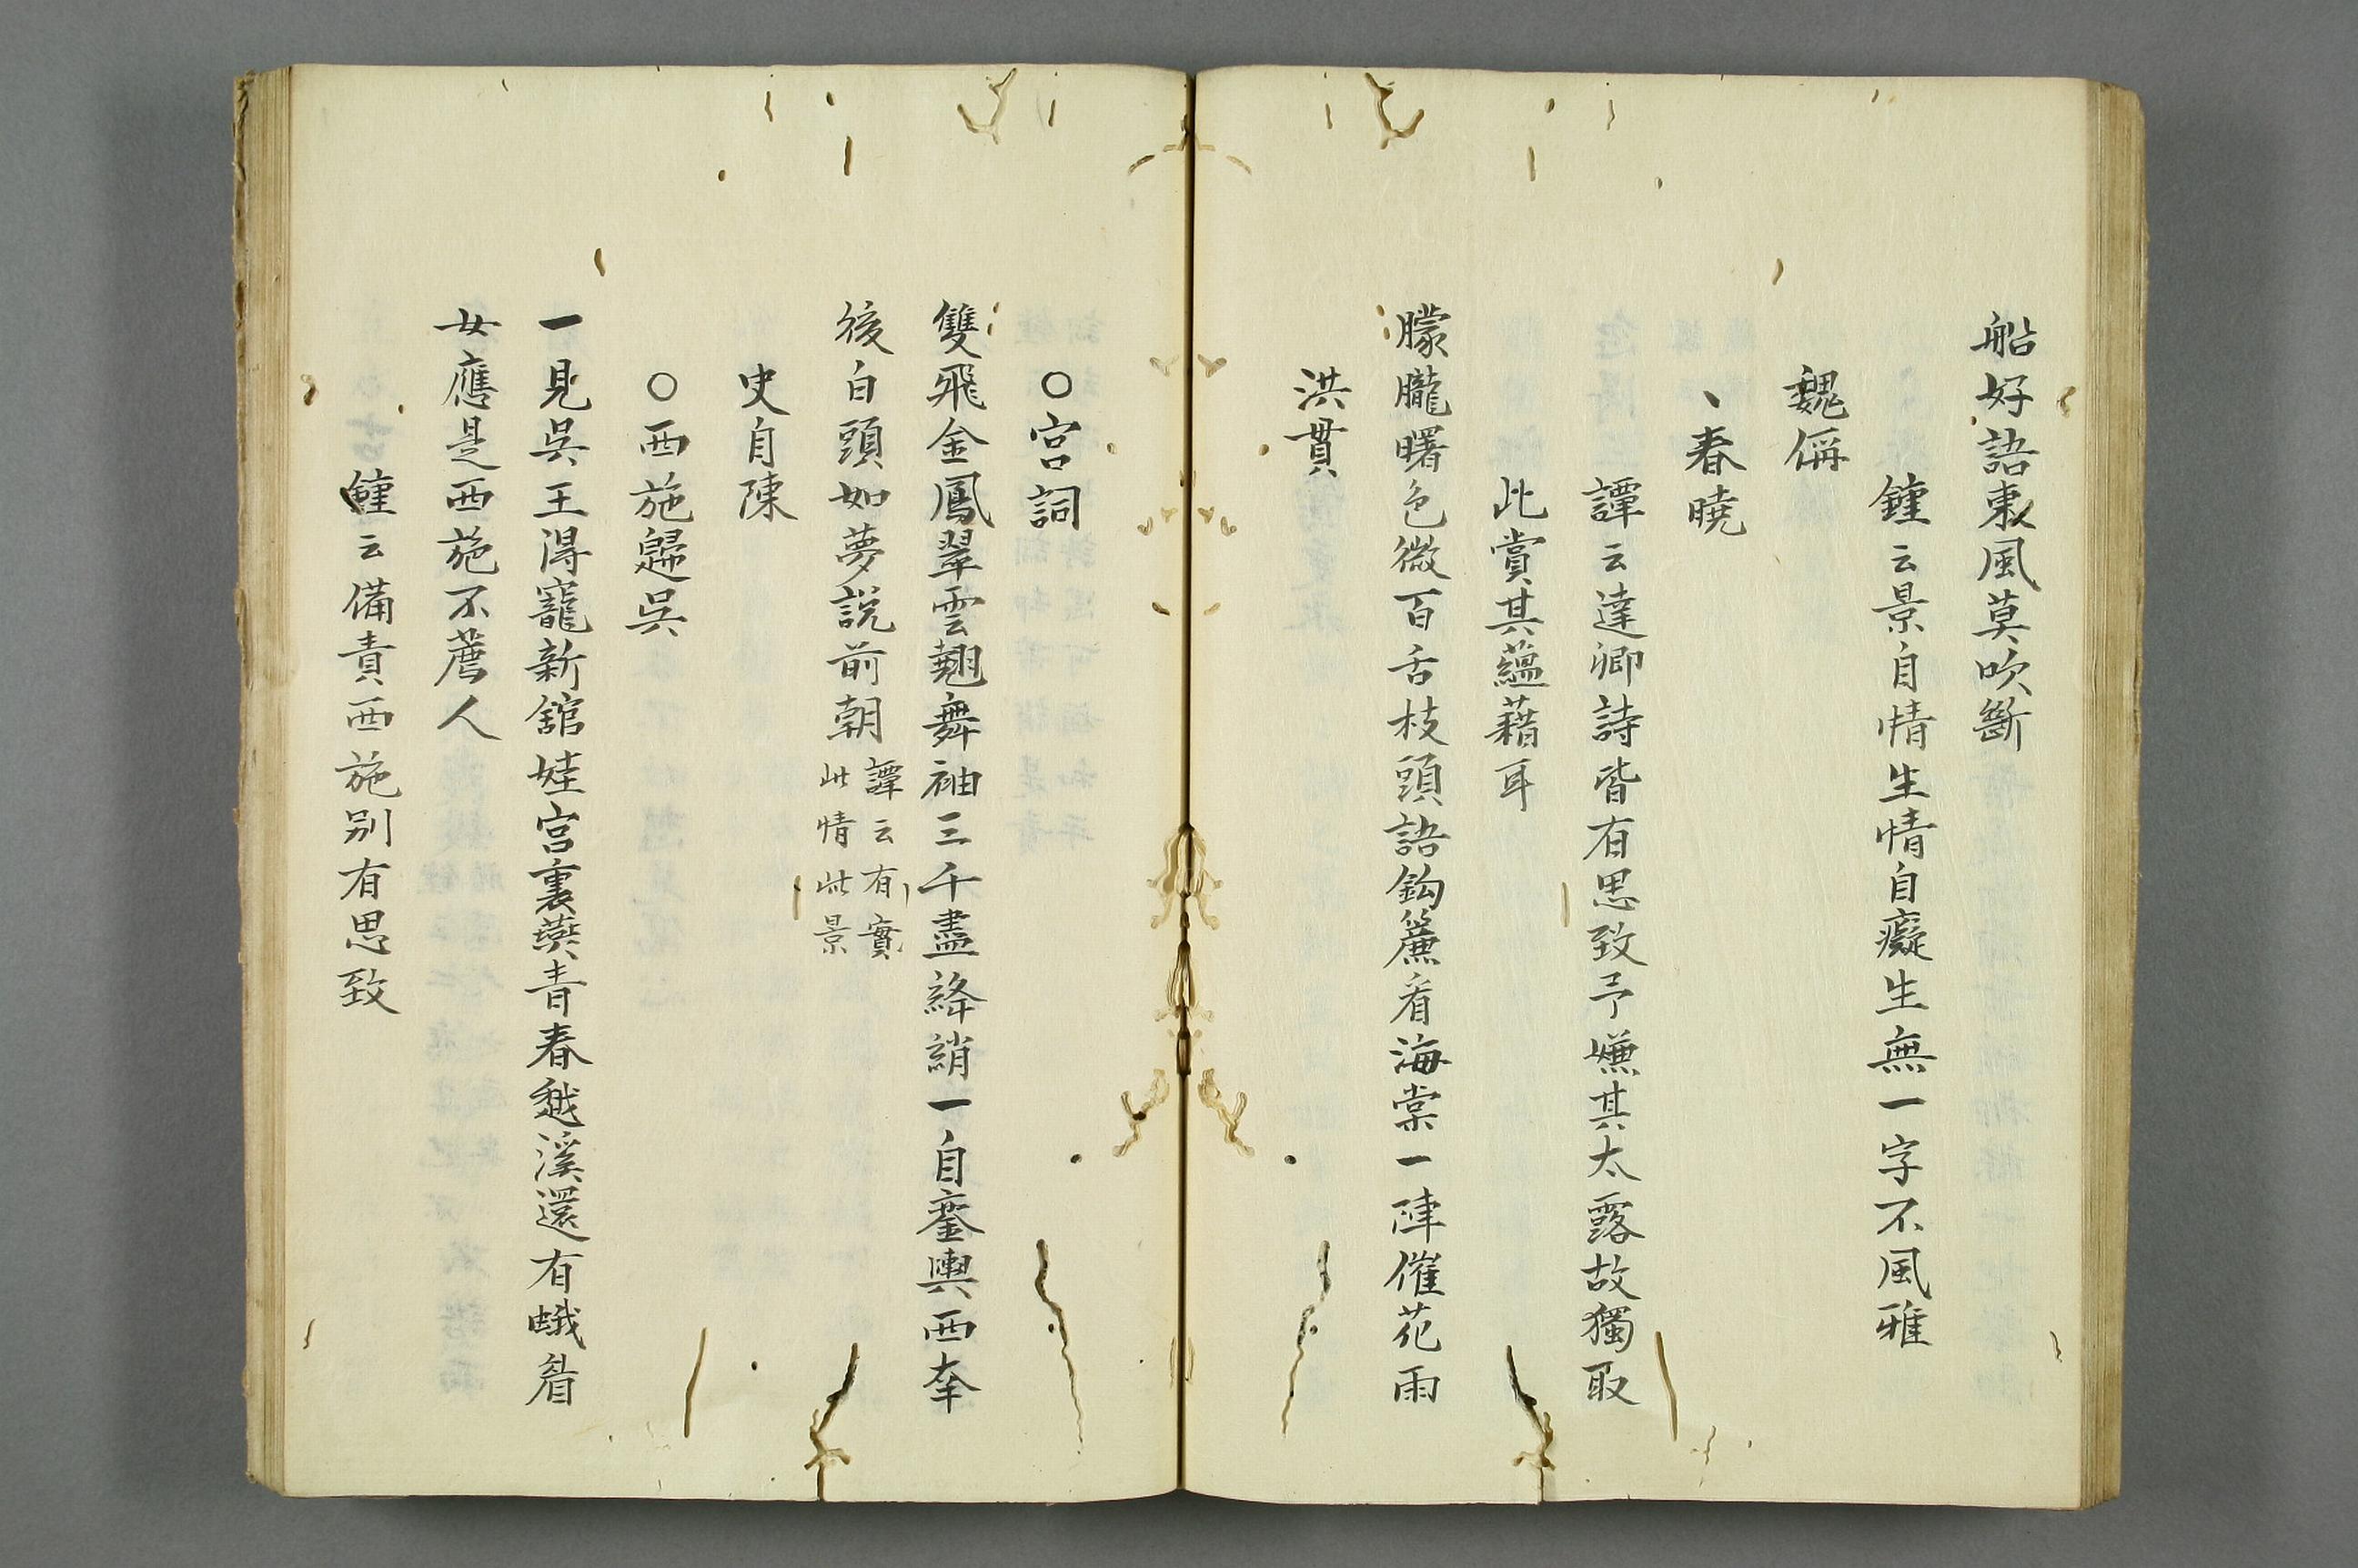 船好語東風莫吹斷
鍾云景自情生情自癡生無一字不風雅
魏偁
、春曉
譚云達卿詩皆有思致予嫌其太露故獨取
此賞其蘊藉耳
朦朧曙色微百舌枝頭語鈎簾看海棠一陣催花雨
洪貫
○宮詞
雙飛金鳳翠雲翹舞袖三千盡絳綃一自鑾輿西幸
後白頭如夢說前朝譚云有實此情此景
史自陳
○西施歸吳
一見吳王得寵新舘娃宮裏燕青春越溪還有蛾眉
女應是西施不薦人
鍾云備責西施別有思致